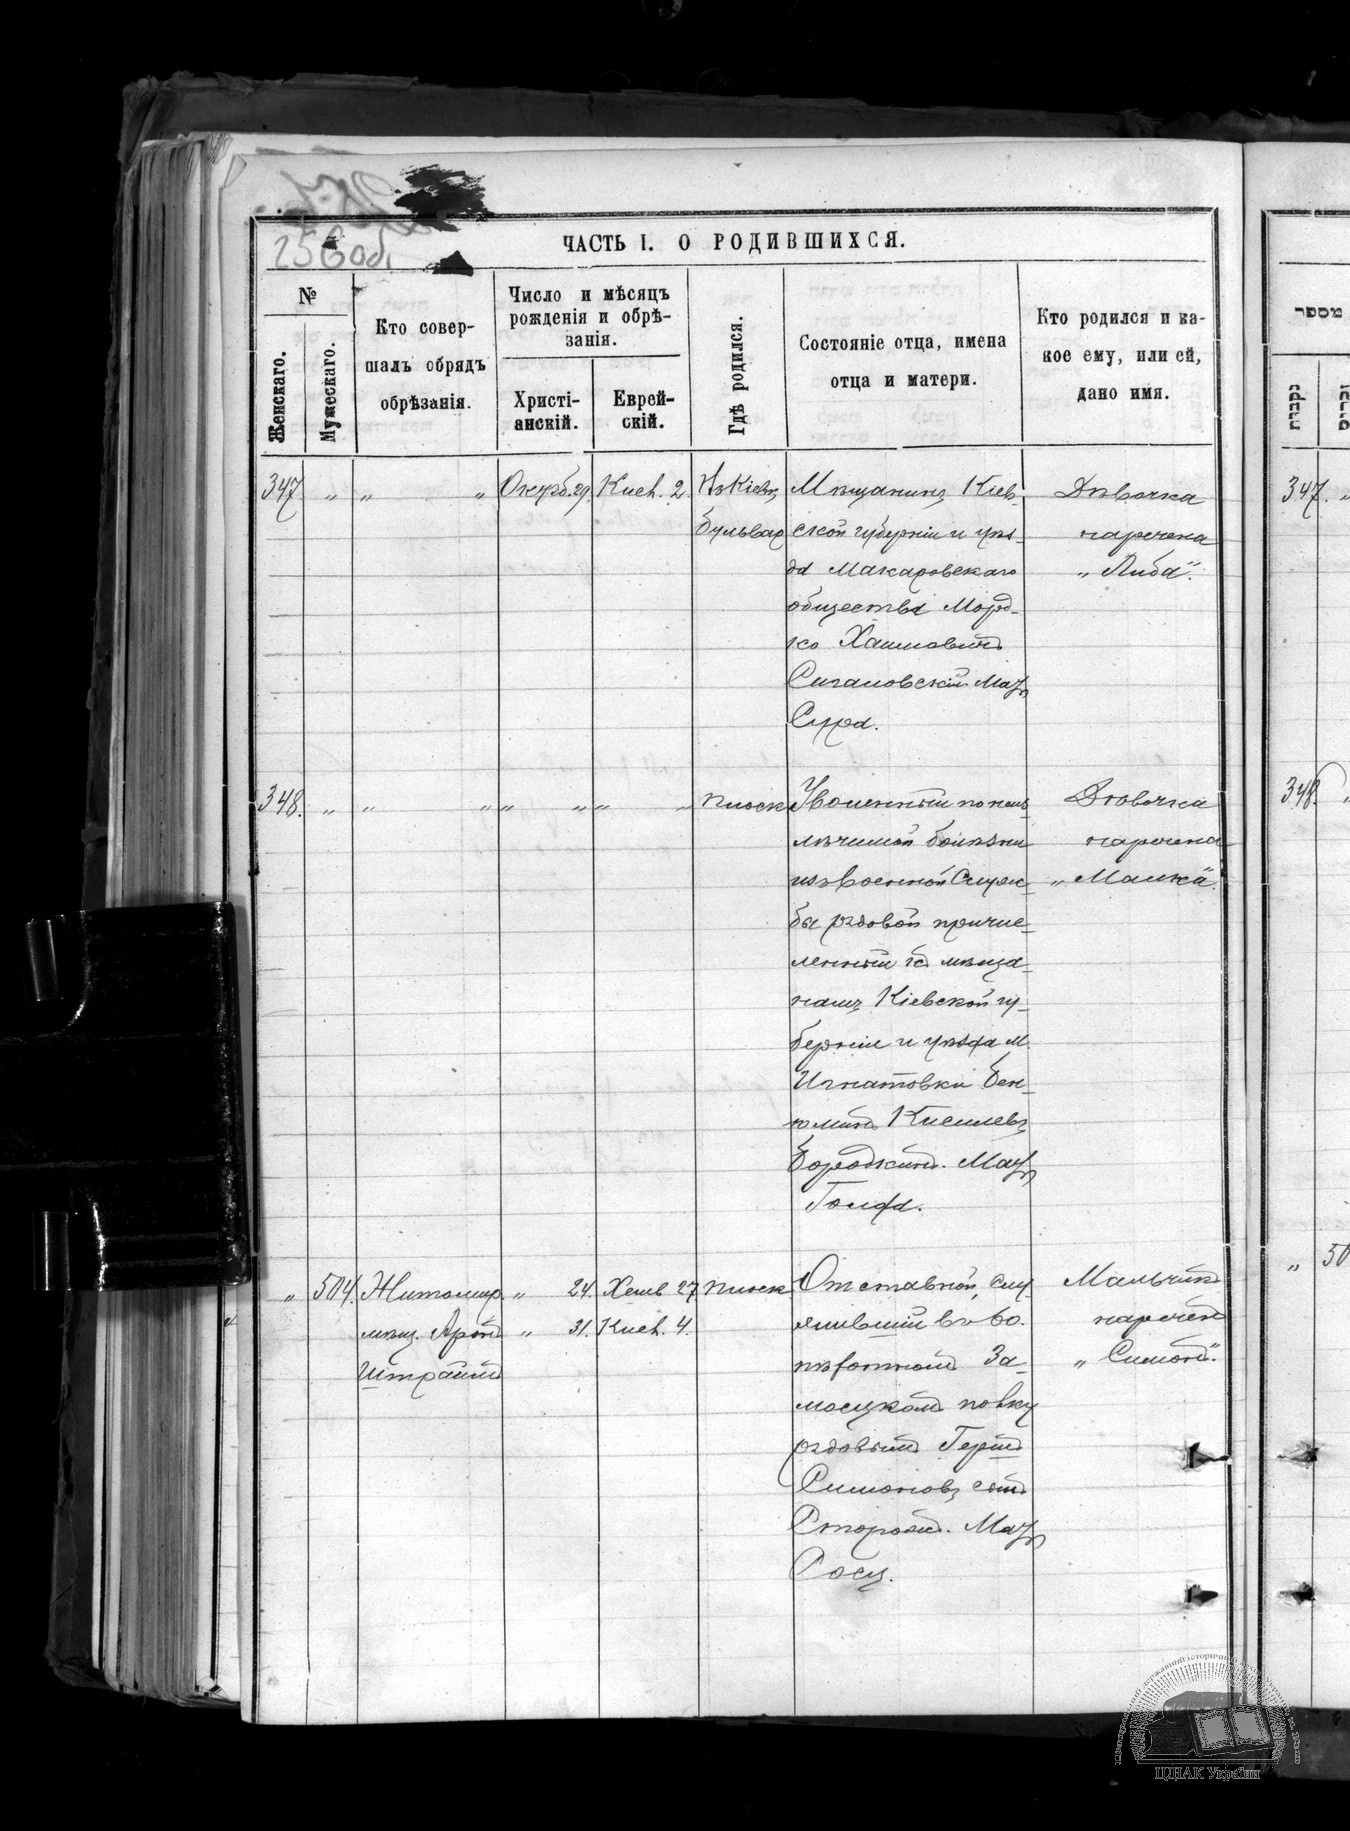 256 об.
ЧАСТЬ I. О РОДИВШИХСЯ.
№
Женскаго.
Мужескаго.
Кто совер-
шалъ обрядъ
обрѣзанія.
Число и мѣсяцъ
рожденія и обрѣ-
занія.
Христі-
анскій.
Еврей-
скій.
Гдѣ родился.
Состояніе отца, имена
отца и матери.
Кто родился и ка-
кое ему, или ей,
дано имя.
מספר
נקבות
זכרים
347 " " " Октяб. 29. Кисл. 2. Кіев
Бульвар
Мѣщанинъ Кіев-
ской губерніи и уѣз-
да Макаровскаго
общества Морд-
ко Хаимовичъ
Сигаловскій. Мать
Сура.
Дѣвочка
наречена
„Либа".
347. "
348. " " " " " " " Плоск.
Уволенный по неиз-
лѣчимой болѣзни
изъ военной служ-
бы рядовой причис-
ленный къ мѣща-
намъ Кіевской гу-
берніи и уѣзда м.
Игнатовки Бен-
юминъ Киселевъ
Бородкинъ. Мать
Голда.
Дѣвочка
наречена
„Малка".
348. "
" 504. Житомир. " 24. Хешв 27 Плоск.
мѣщ. Аронъ " 31. Кисл. 4.
Штраймъ
Отставной, слу-
жившій въ 60.
пѣхотномъ За-
мосцкомъ полку
рядовымъ Герш
Симоновъ сынъ
Сторожъ. Мать
Росц.
Мальчикъ
нареченъ
„Симонъ".
" 50
ЦДІАК України